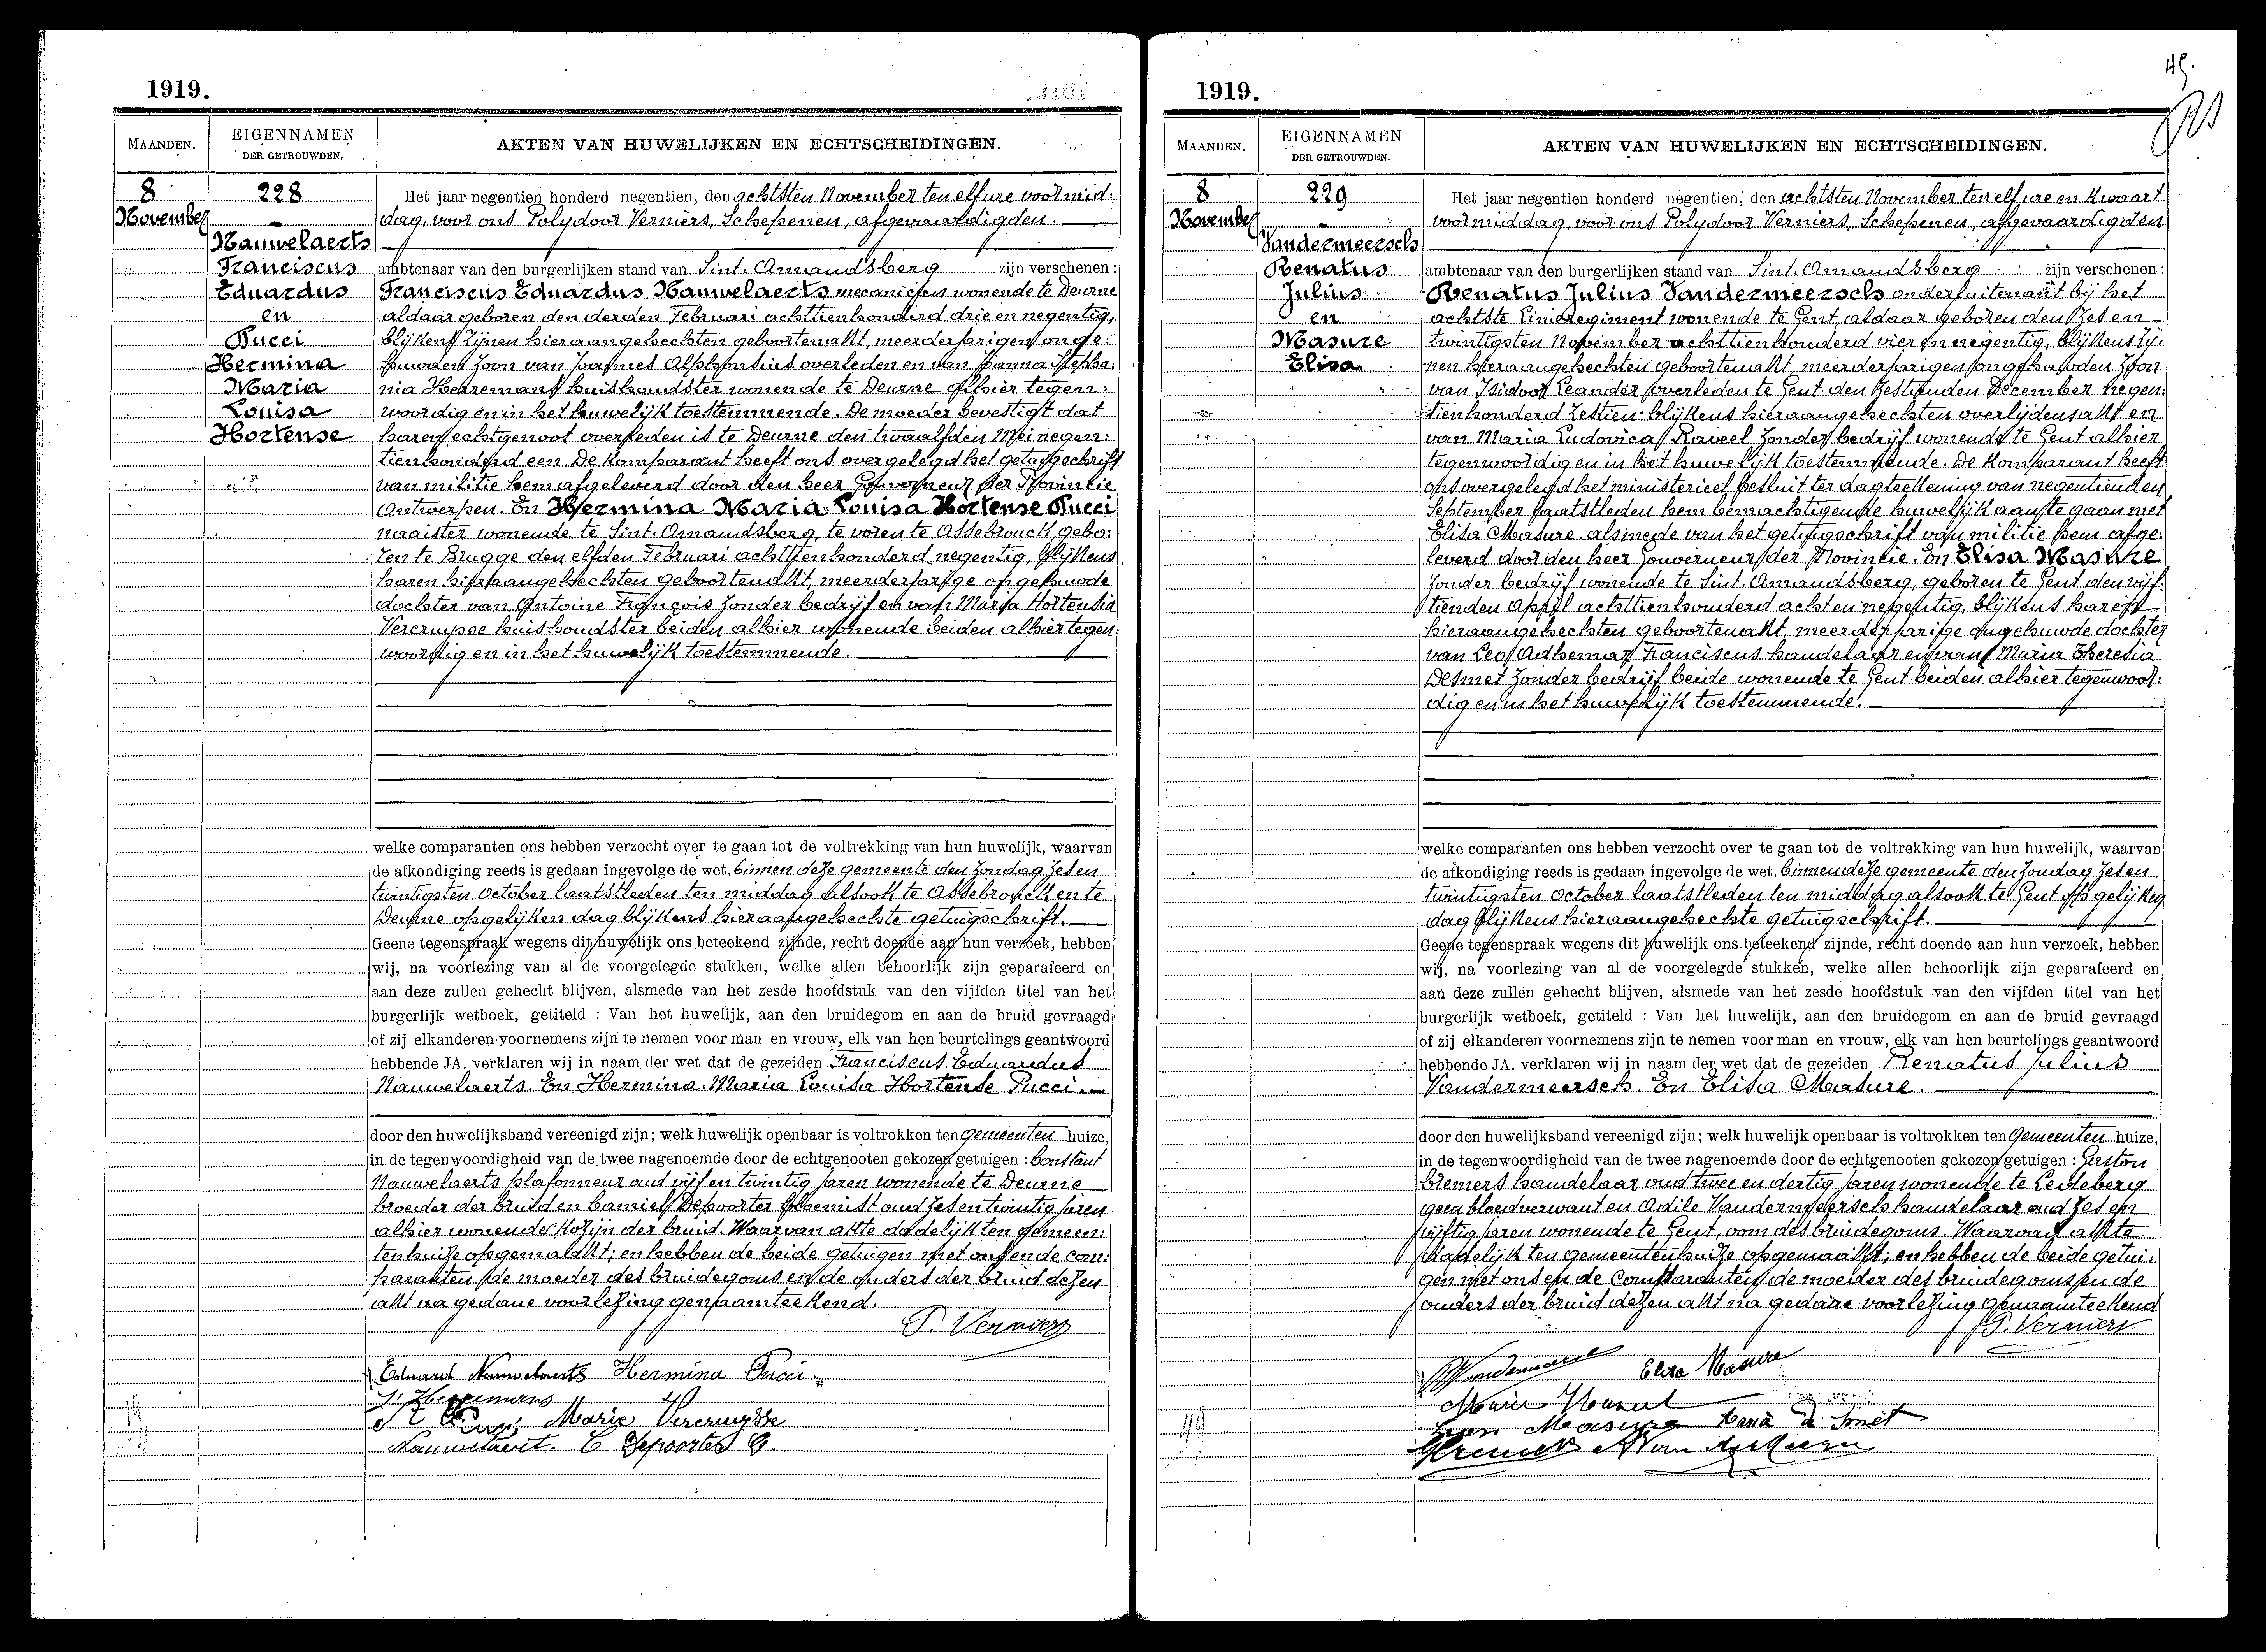 1919.
MAANDEN.
EIGENNAMEN
DER GETROUWDEN.
AKTEN VAN HUWELIJKEN EN ECHTSCHEIDINGEN.
8
November
228
Nauwelaerts
Franciscus
Eduardus
en
Pucci
Hermina
Maria
Louisa
Hortense
Het jaar negentien honderd negentien, den achtsten November ten elf ure voormid:
dag, voor ons Polydoor Verniers, Schepenen, afgevaardigden.
ambtenaar van den burgerlijken stand van Sint. Amandsberg zijn verschenen:
Franciscus Eduardus Nauwelaerts mecanicien wonende te Deurne
aldaar geboren den derden Februari achttienhonderd drie en negentig,
blijkens zijnen hieraangehechten geboortenakt, meerderjarigen onge:
huwden zoon van Joannes Alphonsius overleden en van Joanna Stepha:
nia Heeremans huishoudster wonende te Deurne alhier tegen:
woordig en in het huwelijk toestemmende. De moeder bevestigt dat
haren echtgenoot overleden is te Deurne den twaalfden Mei negen:
tienhonderd een. De komparant heeft ons overgelegd het getuigschrift
van militie hem afgeleverd door den heer Gouverneur der Provincie
Antwerpen. En Hermina Maria Louisa Hortense Pucci
naaister wonende te Sint. Amandsberg, te voren te Assebrouck, gebo:
ren te Brugge den elfden Februari achttienhonderd negentig, blijkens
haren hieraangehechten geboortenakt, meerderjarige ongehuwde
dochter van Antoine François zonder bedrijf en van Maria Hortensia
Vercruysse huishoudster beiden alhier wonende beiden alhier tegen:
woordig en in het huwelijk toestemmende.
welke comparanten ons hebben verzocht over te gaan tot de voltrekking van hun huwelijk, waarvan
de afkondiging reeds is gedaan ingevolge de wet, binnen deze gemeente den zondag zes en
twintigsten October laatstleden ten middag alsook te Assebrouck en te
Deurne op gelijken dag blijkens hieraangehechte getuigschrift.
Geene tegenspraak wegens dit huwelijk ons beteekend zijnde, recht doende aan hun verzoek, hebben
wij, na voorlezing van al de voorgelegde stukken, welke allen behoorlijk zijn geparafeerd en
aan deze zullen gehecht blijven, alsmede van het zesde hoofdstuk van den vijfden titel van het
burgerlijk wetboek, getiteld : Van het huwelijk, aan den bruidegom en aan de bruid gevraagd
of zij elkanderen voornemens zijn te nemen voor man en vrouw, elk van hen beurtelings geantwoord
hebbende JA. verklaren wij in naam der wet dat de gezeiden Franciscus Eduardus
Nauwelaerts. En Hermina Maria Louisa Hortense Pucci.
door den huwelijksband vereenigd zijn; welk huwelijk openbaar is voltrokken ten gemeenten huize,
in de tegenwoordigheid van de twee nagenoemde door de echtgenooten gekozen getuigen : Constant
Nauwelaerts plafonneur oud vijf en twintig jaren wonende te Deurne
broeder der bruid en Camiel Depoorter bloemist oud zes en twintig jaren
alhier wonende kozijn der bruid. Waarvan akte dadelijk ten gemeen:
tenhuize opgemaakt; en hebben de beide getuigen met ons en de com:
paranten de moeder des bruidegoms en de ouders der bruid dezen
akt na gedane voorlezing genaamteekend.
P. Verniers
Eduard Nauwelaerts Hermina Pucci
S. Heeremans
Marie Vercruysse
Nauwelaert C Depoorter C.
1919.
49.
MAANDEN.
EIGENNAMEN
DER GETROUWDEN.
AKTEN VAN HUWELIJKEN EN ECHTSCHEIDINGEN.
8
November
229
Vandermeersch
Renatus
Julius
en
Masure
Elisa
Het jaar negentien honderd negentien, den achtsten November ten elf ure en kwaart
voormiddag, voor ons Polydoor Verniers, Schepenen, afgevaardigden
ambtenaar van den burgerlijken stand van Sint. Amandsberg zijn verschenen:
Renatus Julius Vandermeersch onderluitenant bij het
achtste Linieregiment wonende te Gent, aldaar geboren den zes en
twintigsten November achttienhonderd vier en negentig, blijkens zij:
nen hieraangehechten geboortenakt, meerderjarigen ongehuwden zoon
van Isidoor Leander overleden te Gent den zestienden December negen:
tienhonderd zestien blijkens hieraangehechten overlijdensakt en
van Maria Ludovica Raveel zonder bedrijf wonende te Gent alhier
tegenwoordig en in het huwelijk toestemmende. De komparant heeft
ons overgelegd het ministerieel besluit ter dagteekening van negentienden
September laatstleden hem bemachtigende huwelijk aan te gaan met
Elisa Masure, alsmede van het getuigschrift van militie hem afge:
leverd door den heer Gouverneur der Provincie. En Elisa Masure
zonder bedrijf wonende te Sint. Amandsberg, geboren te Gent den vijf:
tienden April achttienhonderd acht en negentig, blijkens haren
hieraangehechten geboortenakt, meerderjarige ongehuwde dochter
van Leo Adhemar Franciscus handelaar en van Maria Theresia
Desmet zonder bedrijf beide wonende te Gent beiden alhier tegenwoor:
dig en in het huwelijk toestemmende.
welke comparanten ons hebben verzocht over te gaan tot de voltrekking van hun huwelijk, waarvan
de afkondiging reeds is gedaan ingevolge de wet, binnen deze gemeente den zondag zes en
twintigsten October laatstleden ten middag alsook te Gent op gelijken
dag blijkens hieraangehechte getuigschrift.
Geene tegenspraak wegens dit huwelijk ons beteekend zijnde, recht doende aan hun verzoek, hebben
wij, na voorlezing van al de voorgelegde stukken, welke allen behoorlijk zijn geparafeerd en
aan deze zullen gehecht blijven, alsmede van het zesde hoofdstuk van den vijfden titel van het
burgerlijk wetboek, getiteld : Van het huwelijk, aan den bruidegom en aan de bruid gevraagd
of zij elkanderen voornemens zijn te nemen voor man en vrouw, elk van hen beurtelings geantwoord
hebbende JA. verklaren wij in naam der wet dat de gezeiden Renatus Julius
Vandermeersch. En Elisa Masure.
door den huwelijksband vereenigd zijn; welk huwelijk openbaar is voltrokken ten gemeenten huize,
in de tegenwoordigheid van de twee nagenoemde door de echtgenooten gekozen getuigen : Gaston
Cremers handelaar oud twee en dertig jaren wonende te Ledeberg
geen bloedverwant en Adile Vandermeersch handelaar oud zes en
vijftig jaren wonende te Gent, oom des bruidegoms. Waarvan akte
dadelijk ten gemeentenhuize opgemaakt; en hebben de beide getui:
gen met ons en de comparanten de moeder des bruidegoms en de
ouders der bruid dezen akt na gedane voorlezing genaamteekend
P. Verniers
Elisa Masure
Masure